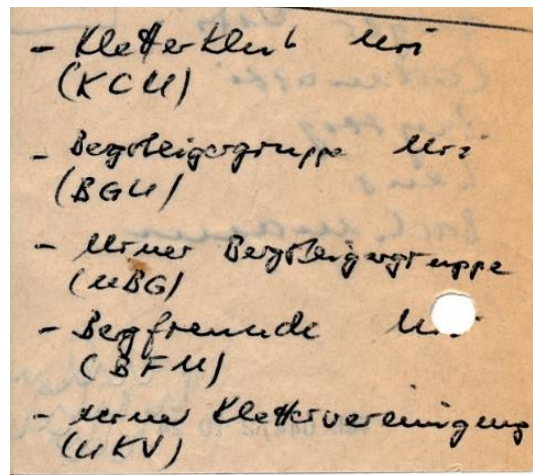 - Kletterklub Uri
(KCU)
- Bergsteigergruppe Uri
(BGU)
- Urner Bergsteigergruppe
(UBG)
- Bergfreunde Uri
(BFU)
- Urner Klettervereinigung
(UKV)